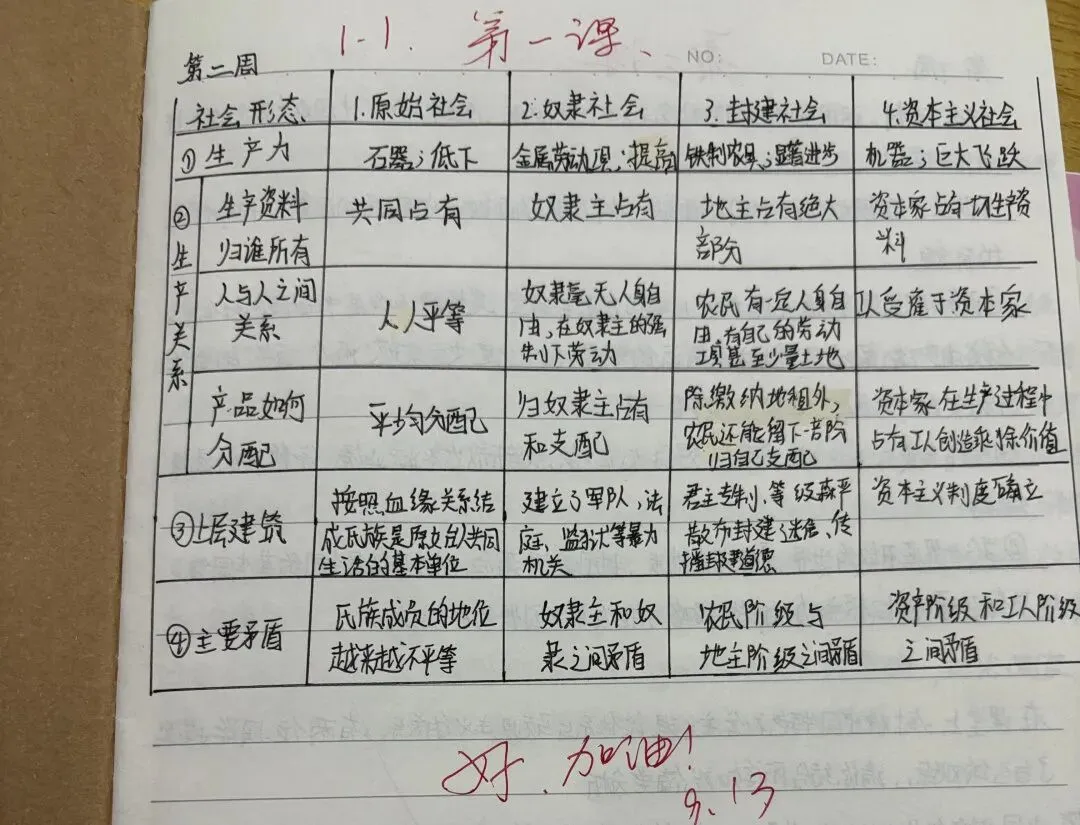 1-1. 第一课、
NO: DATE:
第二周
社会形态 1.原始社会 2.奴隶社会 3.封建社会 4.资本主义社会
①生产力 石器;低下 金属劳动工具;提高 铁制农具;显著进步 机器;巨大飞跃
②生产关系
生产资料
归谁所有
共同占有
奴隶主占有
地主占有绝大
部分
资本家占有一切生产资
料
人与人之间
关系
人人平等
奴隶毫无人身自
由,在奴隶主的强
制下劳动
农民有一定人身自
由,有自己的劳动
工具甚至少量土地
工人受雇于资本家
产品如何
分配
平均分配
归奴隶主占有
和支配
除缴纳地租外,
农民还能留下一部分
归自己支配
资本家在生产过程中
占有工人创造剩余价值
③上层建筑
按照血缘关系结
成氏族是原始人共同
生活的基本单位
建立了军队,法
庭、监狱等暴力
机关
君主专制、等级森严
散布封建迷信、传
播封建道德
资本主义制度确立
④主要矛盾
氏族成员的地位
越来越不平等
奴隶主和奴
隶之间矛盾
农民阶级与
地主阶级之间矛盾
资产阶级和工人阶级
之间矛盾
好.加油!
9.13